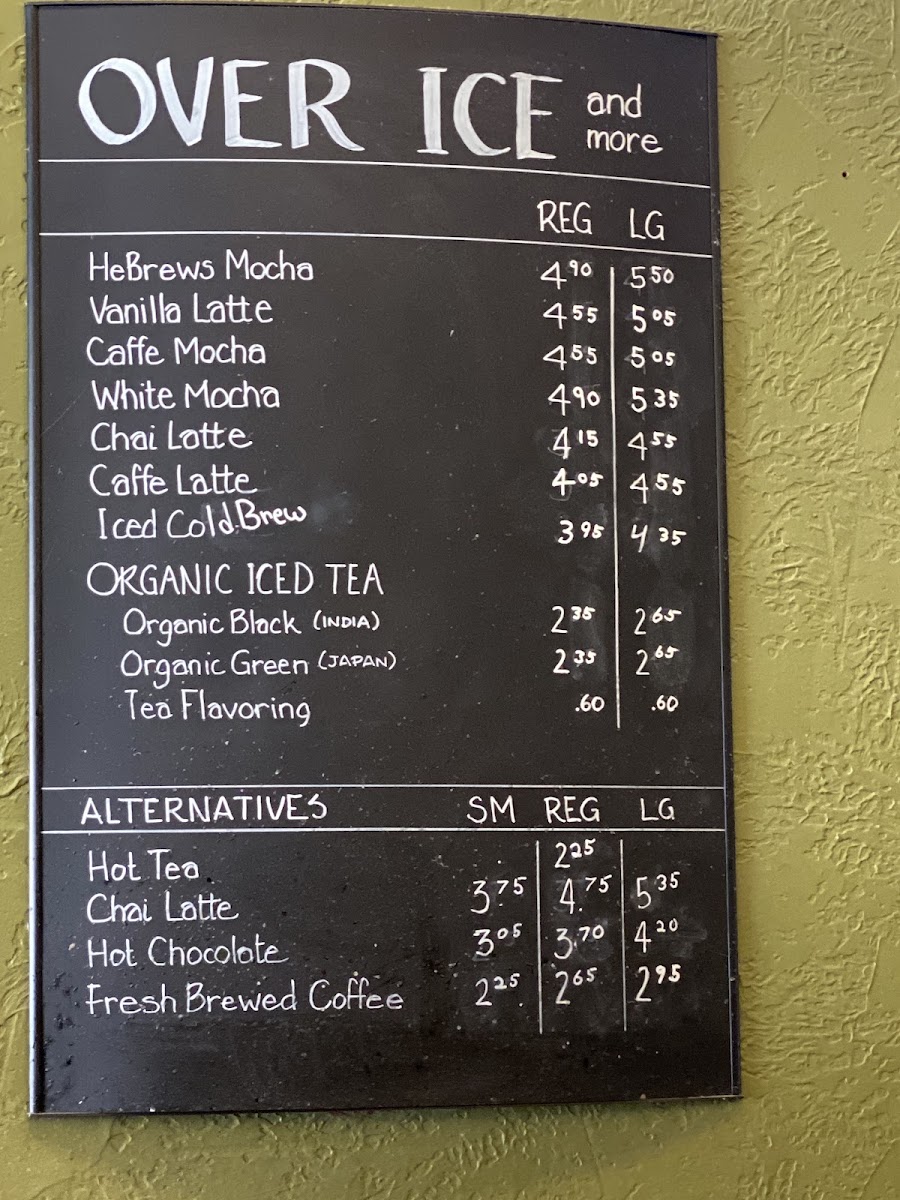 OVER ICE and more
REG LG
HeBrews Mocha 4.90 5.50
Vanilla Latte 4.55 5.05
Caffe Mocha 4.55 5.05
White Mocha 4.90 5.35
Chai Latte 4.15 4.55
Caffe Latte 4.05 4.55
Iced Cold Brew 3.95 4.35
ORGANIC ICED TEA
Organic Black (INDIA) 2.35 2.65
Organic Green (JAPAN) 2.35 2.65
Tea Flavoring .60 .60
ALTERNATIVES SM REG LG
Hot Tea 2.25
Chai Latte 3.75 4.75 5.35
Hot Chocolate 3.05 3.70 4.20
Fresh Brewed Coffee 2.25 2.65 2.95